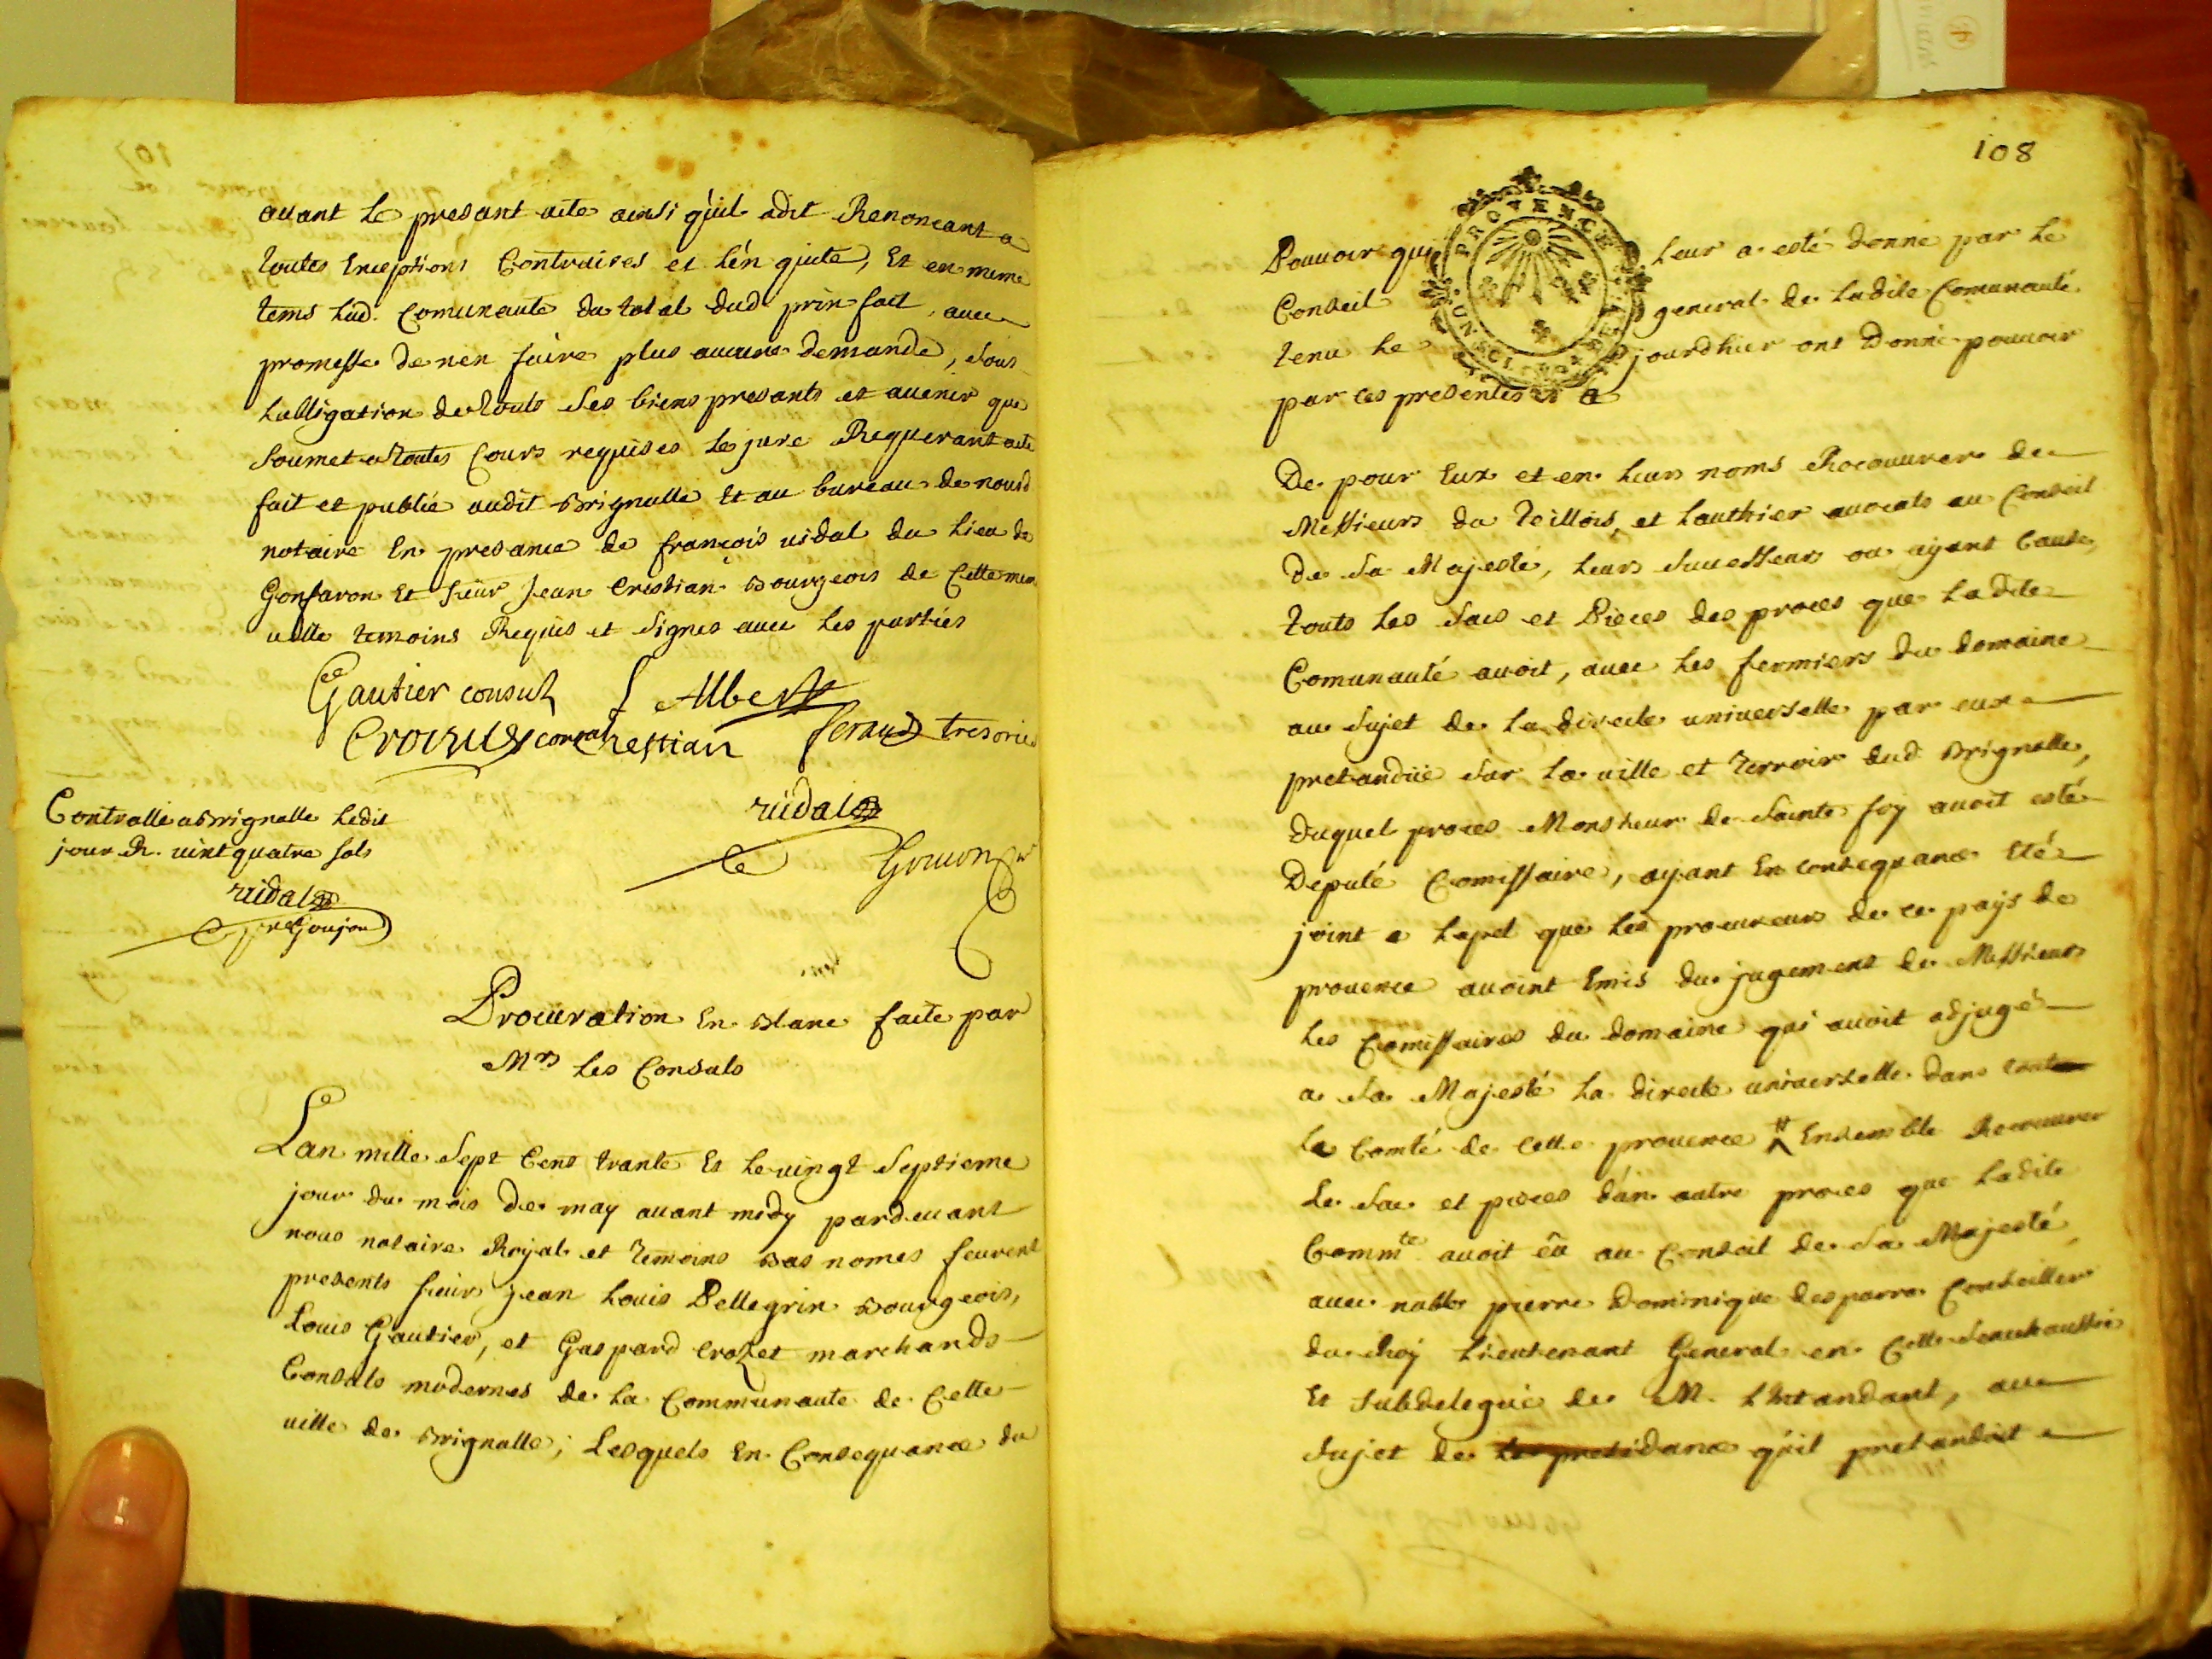 avant le presant acte ainsi quil adit Renoncant a
toutes Exceptions Contraires et lén quite, Et en meme
tems lad. Comunauté du total dud prix fait, avec
promesse de nen faire plus aucune demande, sous
lobligation de touts ses biens presants et avenir que
soumet a toutes Cours requises le jure Requerant acte
fait et publié audit Brignolle Et au bureau de nousd
notaire En presance de françois vidal du lieu de
Gonfaron Et sieur Jean Cristian Bourgeois de Cette meme
ville temoins Requis et signes avec les parties
Gautier consul f Albert
Crozet consul Chestian feraud tresorier
vidal
Goujon
Contrallé a Brignolle ledit
jour R. vint quatre sols
vidal
pr Goujon
Procuration En Blanc faite par
Mrs les Consuls
Lan mille sept Cens trante Et le vingt septieme
jour du mois de may avant midy pardevant
nous notaire Royal et temoins Bas nomes feurent
presents sieurs jean Louis Pellegrin Bourgeois,
Louis Gautier, et Gaspard Crozet marchands
Consuls modernes de la Communaute de Cette
ville de Brignolle; Lesquels En Consequance du
108
PROVENCE
Pouvoir qui leur a esté donné par le
Conseil general de ladite Comunauté
tenu le jourdhier ont Donné pouvoir
par ces presentes a
De pour Eux et en leurs noms Recouvrer de
Messieurs du Teillois, et Lauthier avocats au Conseil
De sa Majesté, leurs successeurs ou ayant Cause,
touts les sacs et Pieces des proces que ladite
Comunauté avoit, avec les fermiers du domaine
au sujet de la directe universelle par eux
pretandüe sur la ville et terroir dud Brignolle,
duquel proces Monsieur de Sainte foy avoit esté
Deputé Comissaire, ayant En consequance Eté
joint a lapel que les procureurs de ce pays de
provence avoint Emis du jugement de Messieurs
les Comissaires du domaine qui avoit adjugé
a sa Majesté la directe universelle dans toute
le Comté de Cette provence # Ensemble Recouvrer
Le sac et pieces dún autre proces que ladite
Commté avoit eû au Conseil de sa Majesté
avec noble pierre Dominique desparra Conseiller
du Roy Lieutenant General en Cette senechaussée
Et subdelegué de M. L'Intandant, au
sujet de la presidance qu'il pretandoit